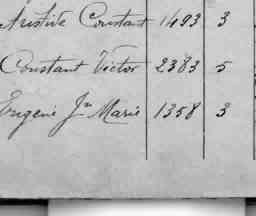 Aristide Constant 1493 3
Constant Victor 2383 5
Eugène Jn Marie 1358 3